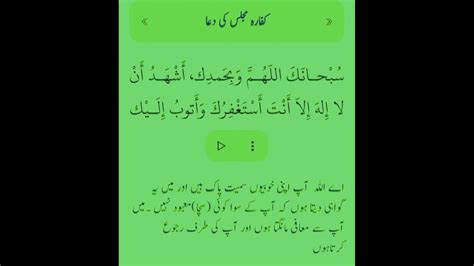 کفارہ مجلس کی دعا
سُبْحـانَكَ اللّهُمَّ وَبِحَمدِك، أَشْهَـدُ أَنْ
لا إِلهَ إِلاّ أَنْتَ أَسْتَغْفِرُكَ وَأَتوبُ إِلَـيْك
اے اللہ آپ اپنی خوبیوں سمیت پاک ہیں اور میں یہ
گواہی دیتا ہوں کہ آپ کے سوا کوئی (سچا)معبود نہیں ۔میں
آپ سے معافی مانگتا ہوں اور آپ کی طرف رجوع
کرتاہوں